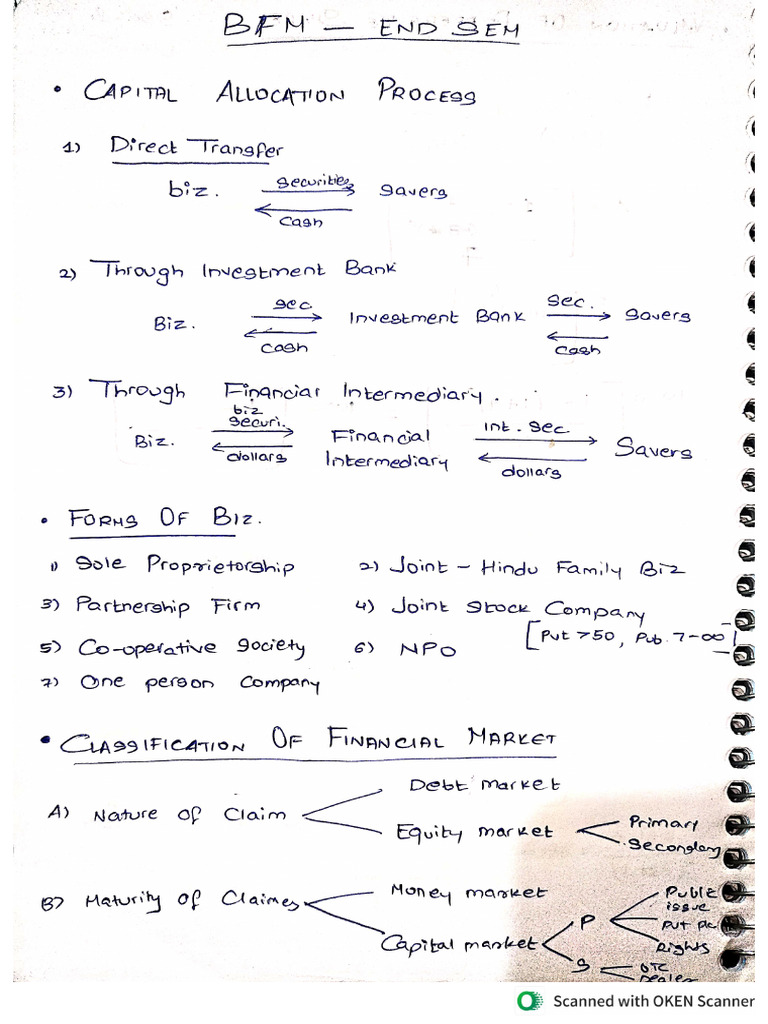 BFM — END SEM
• CAPITAL ALLOCATION PROCESS
1) Direct Transfer
biz. securities savers
cash
2) Through Investment Bank
Biz. sec. Investment Bank Sec. Savers
cash cash
3) Through Financial Intermediary.
Biz. biz securi. Financial Intermediary int. sec Savers
dollars dollars
• FORMS OF BIZ.
1) Sole Proprietorship 2) Joint - Hindu Family Biz
3) Partnership Firm 4) Joint Stock Company
[Put >50, Pub. 7-∞]
5) Co-operative Society 6) NPO
7) One person Company
• CLASSIFICATION OF FINANCIAL MARKET
A) Nature of Claim
Debt market
Equity market
Primary
Secondary
B) Maturity of Claimes
Money market
Capital market
P
Public issue
Put
Rights
S
OTC
Dealer
Scanned with OKEN Scanner